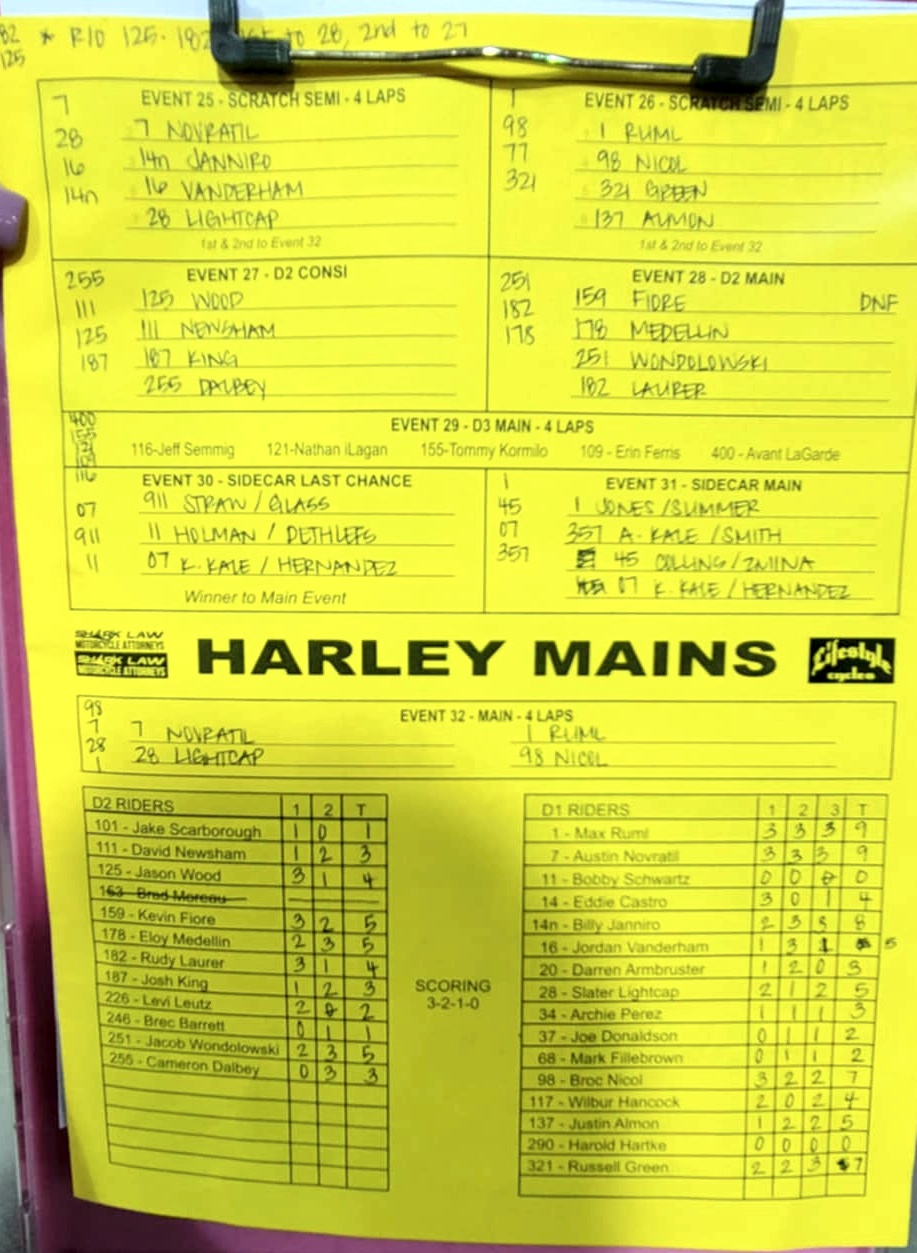 82 * R/O 125-182 1st to 28, 2nd to 27
125
EVENT 25 - SCRATCH SEMI - 4 LAPS
7
28 7 NOVRATIL
16 14n JANNIRO
14n 16 VANDERHAM
28 LIGHTCAP
1st & 2nd to Event 32
EVENT 26 - SCRATCH SEMI - 4 LAPS
1
98 1 RUML
77 98 NICOL
321 321 GREEN
137 ALMON
1st & 2nd to Event 32
EVENT 27 - D2 CONSI
255
111 125 WOOD
125 111 NEWSHAM
187 187 KING
255 DALBEY
EVENT 28 - D2 MAIN
251
182 159 FIORE DNF
178 178 MEDELLIN
251 WONDOLOWSKI
182 LAURER
EVENT 29 - D3 MAIN - 4 LAPS
400
155
121
109
116
116-Jeff Semmig 121-Nathan iLagan 155-Tommy Kormilo 109 - Erin Ferris 400 - Avant LaGarde
EVENT 30 - SIDECAR LAST CHANCE
07 911 STRAW / GLASS
911 11 HOLMAN / DETHLEFS
11 07 K. KALE / HERNANDEZ
Winner to Main Event
EVENT 31 - SIDECAR MAIN
1
45 1 JONES / SUMMER
07 357 A. KALE / SMITH
357 45 COLLING / ZNIINA
07 K. KALE / HERNANDEZ
SHARK LAW
MOTORCYCLE ATTORNEYS
SHARK LAW
MOTORCYCLE ATTORNEYS
HARLEY MAINS
Lifestyle
cycles
EVENT 32 - MAIN - 4 LAPS
98
7 7 NOVRATIL 1 RUML
28 28 LIGHTCAP 98 NICOL
1
D2 RIDERS 1 2 T
101 - Jake Scarborough 1 0 1
111 - David Newsham 1 2 3
125 - Jason Wood 3 1 4
163 - Brad Moreau
159 - Kevin Fiore 3 2 5
178 - Eloy Medellin 2 3 5
182 - Rudy Laurer 3 1 4
187 - Josh King 1 2 3
226 - Levi Leutz 2 0 2
246 - Brec Barrett 0 1 1
251 - Jacob Wondolowski 2 3 5
255 - Cameron Dalbey 0 3 3
SCORING
3-2-1-0
D1 RIDERS 1 2 3 T
1 - Max Ruml 3 3 3 9
7 - Austin Novratil 3 3 3 9
11 - Bobby Schwartz 0 0 0 0
14 - Eddie Castro 3 0 1 4
14n - Billy Janniro 2 3 3 8
16 - Jordan Vanderham 1 3 1 5
20 - Darren Armbruster 1 2 0 3
28 - Slater Lightcap 2 1 2 5
34 - Archie Perez 1 1 1 3
37 - Joe Donaldson 0 1 1 2
68 - Mark Fillebrown 0 1 1 2
98 - Broc Nicol 3 2 2 7
117 - Wilbur Hancock 2 0 2 4
137 - Justin Almon 1 2 2 5
290 - Harold Hartke 0 0 0 0
321 - Russell Green 2 2 3 7